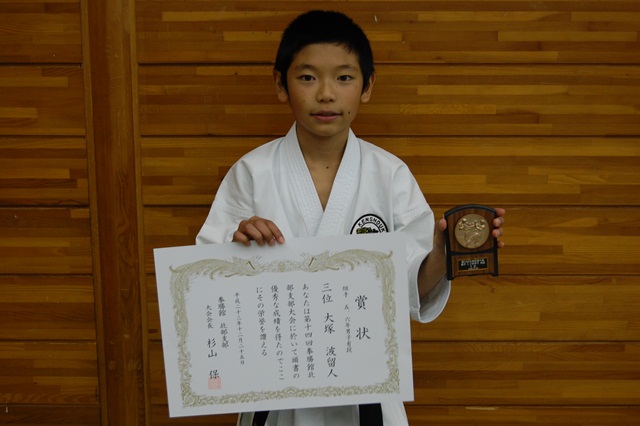 賞状
組手 五、六年男子
三位 大塚 波留人
あなたは第十四回拳勝館北
部支部大会に於いて頭書の
優秀な成績を得たのでここ
にその栄誉を讃える
平成二十二年十二月二十五日
拳勝館 北部支部
大会会長 杉山 保
KENSHOUKAN